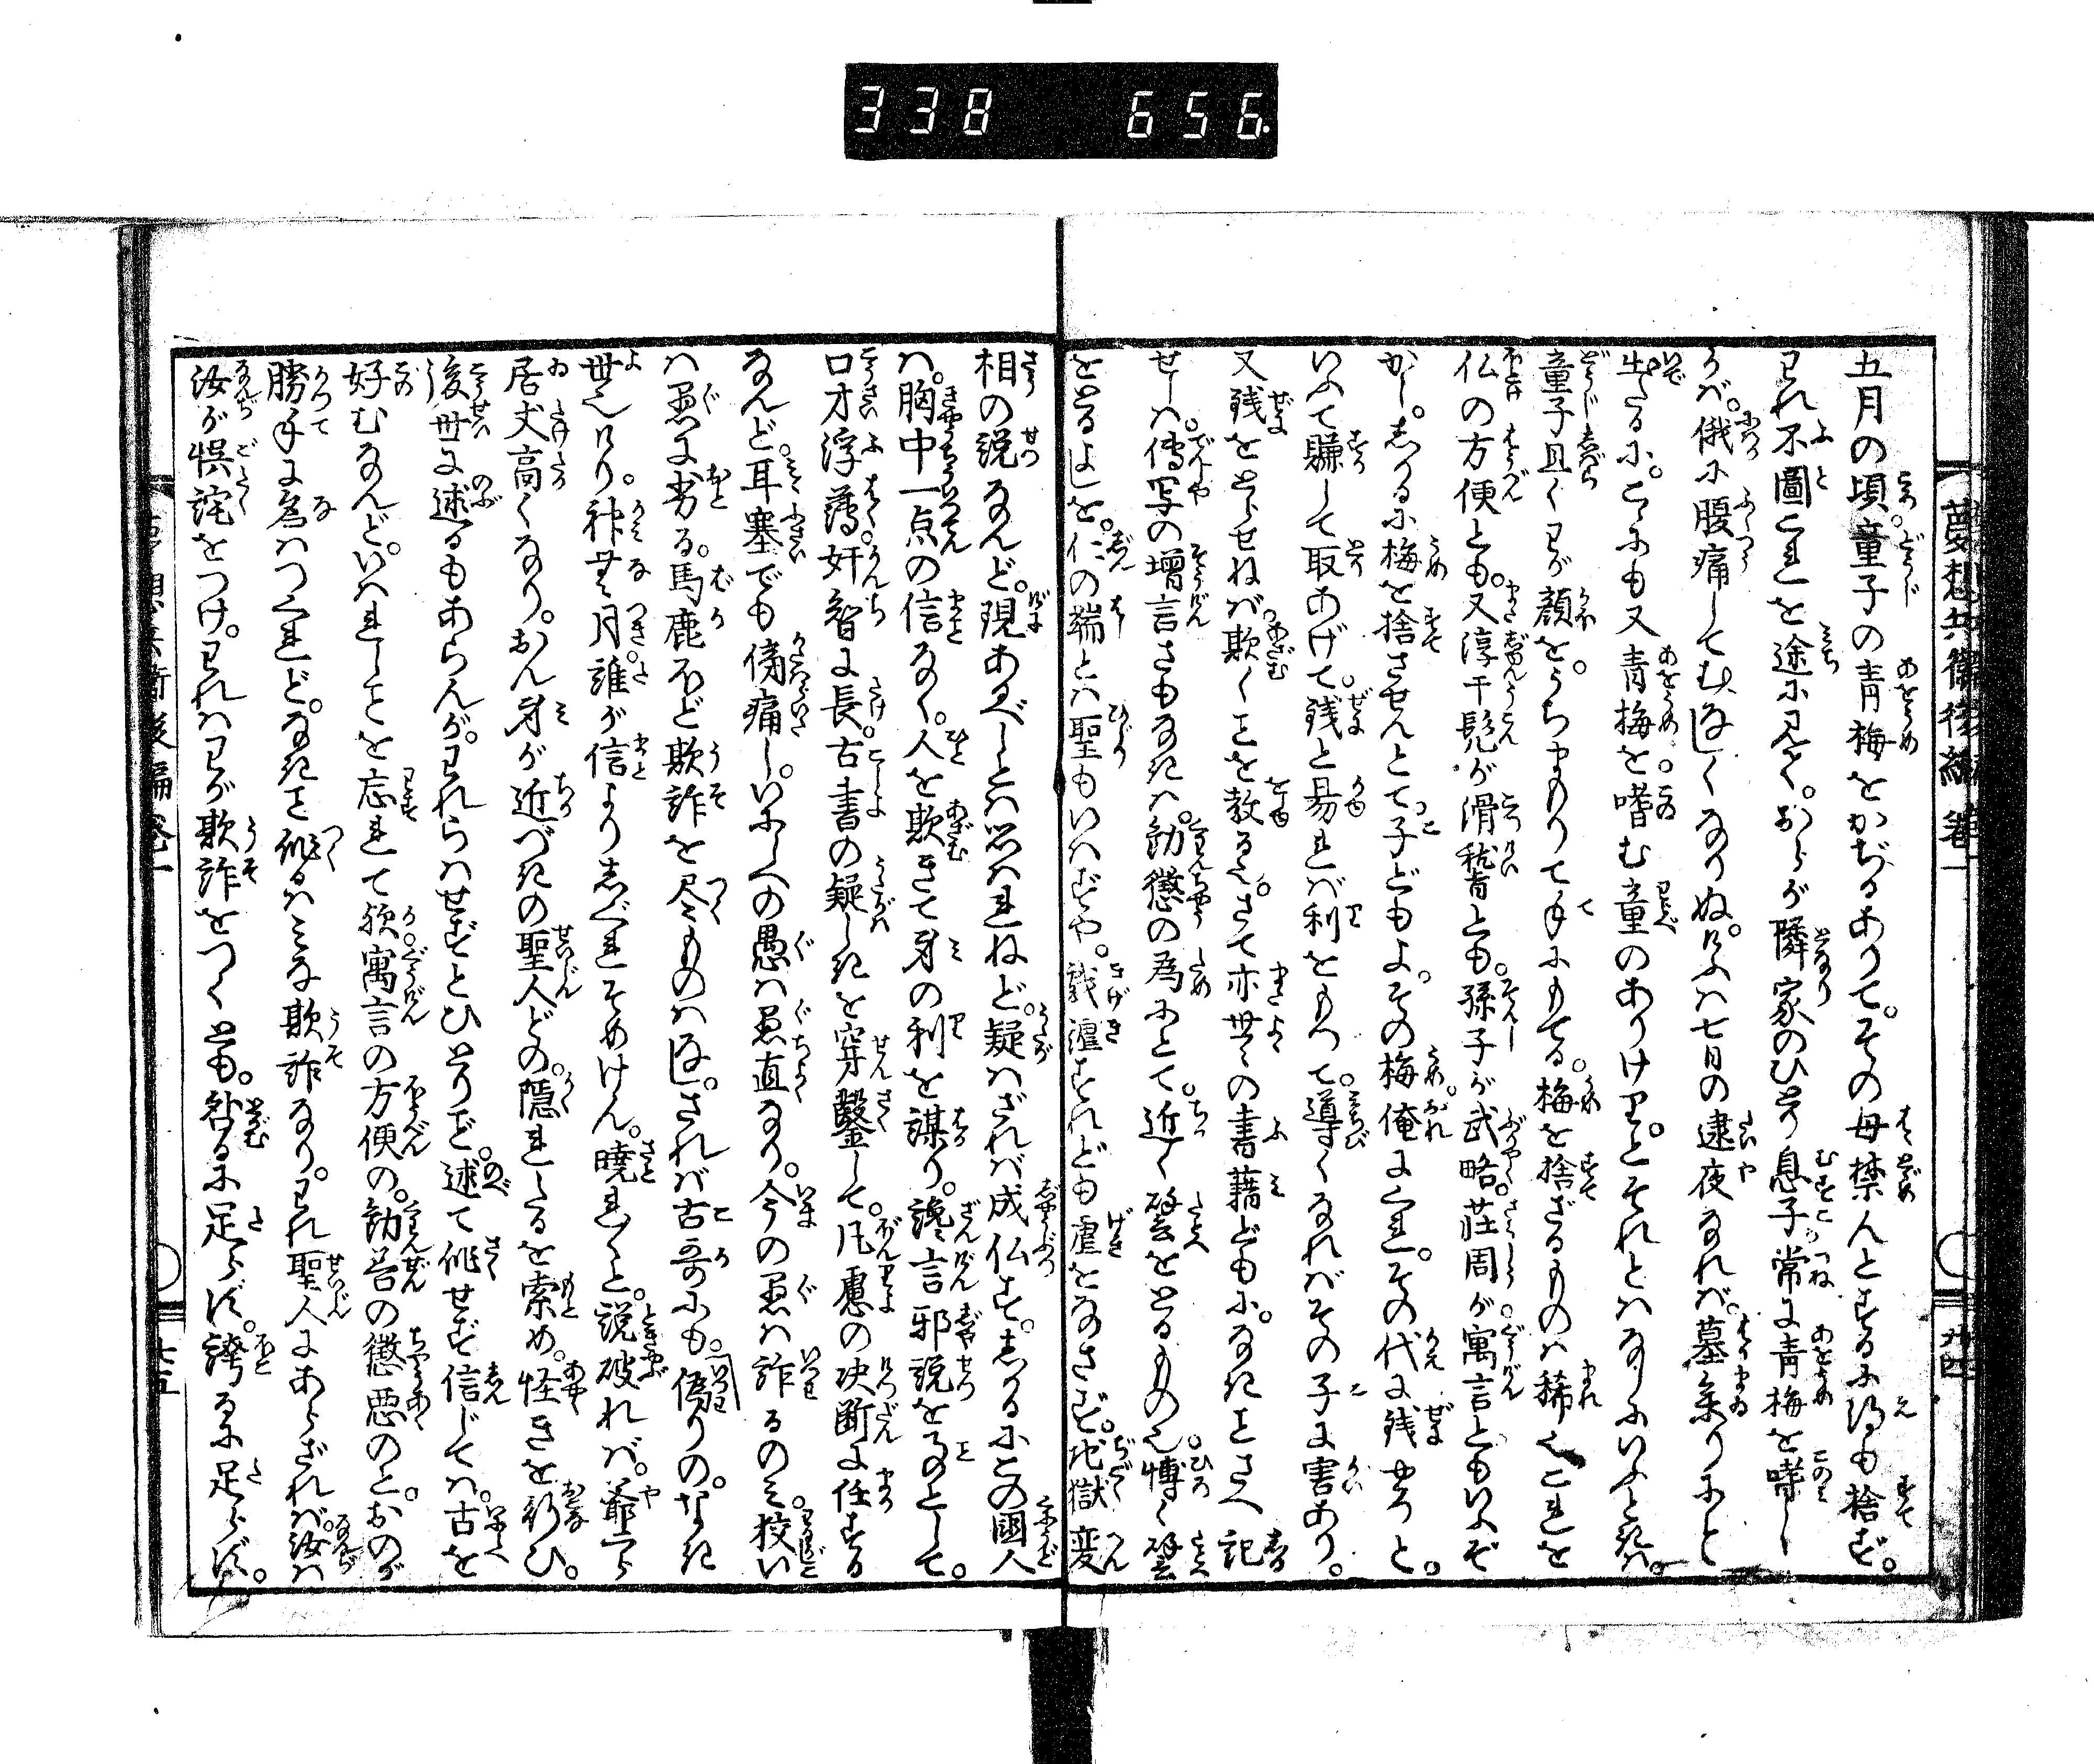 338 656
夢想兵衛後編 巻一
五月の頃。童子の青梅をかぢるありて。その母禁んとするに得も捨ず。
われ不圖これを途に見て。おらが隣家のひとり息子。常に青梅を嗜し
かば。俄に腹痛してむなしくなりぬ。けふは七日の逮夜なれば。墓參りにと
出たるに。こゝにも又青梅を。嗜む童のありけりと。それとはなしにいふときは。
童子且くわが顔を。うちまもりて手にもてる。梅を捨ざるものは稀也。これを
仏の方便とも。又淳于髠が滑稽とも。孫子が武略。莊周が寓言ともいふぞ
かし。しかるに梅を捨させんとて。子どもよ。その梅俺にくれ。その代に銭やろと。
いふて賺して取あげて。銭と易れば利をもつて。導くなればその子に害あり。
又銭をとらせねば。欺くことを教る也。さて亦世々の書籍どもに。なきことさへ記
せしは。傳写の増言さもなきは。勧懲の為にとて。近く譬をとるもの也。博く譬
をとるよしを。仁の端とは聖もいはずや。戯謔すれども虐をなさず。地獄変
相の説なんど。現あるべしとは思はれねど。疑はざれば成仏す。しかるにこの國人
は。胸中一点の信なく。人を欺きて身の利を謀り。讒言邪説を事として。
口才浮薄。奸智に長。古書の疑しきを穿鑿して。凡慮の决断に任する
なんど。耳塞でも傍痛し。いにしへの愚は愚直なり。今の愚は詐るのミ。狡い
は愚に劣る。馬鹿ほど欺詐を尽ものはなし。されば古哥にも。偽りの。なき
世也けり。神無月。誰が信よりしぐれそめけん。曉れ〳〵と。説破れば。爺ハら
居丈高くなり。おん身が近づきの聖人どの。隠れたるを索め。怪きを行ひ。
後世に述るもあらんが。われらはせずとひとりご。述て作せず信じては。古を
好むなんど。いはれしことを忘れて欤。寓言の方便の。勧善の懲悪のと。おのが
勝手に為はつくれど。なきこと作るはミな欺詐なり。われ聖人にあらざれば。汝は
汝が悞詫をつけ。われはわが欺詐をつくとも。咎るに足らず。誇るに足らず。